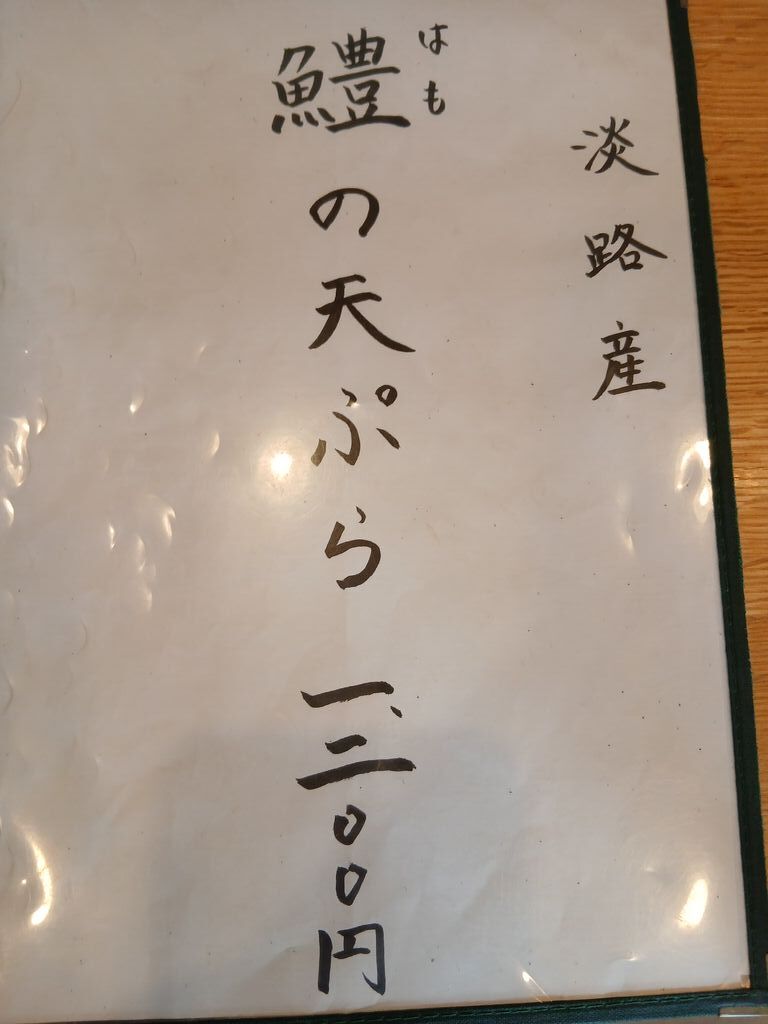 淡路産
はも
鱧の天ぷら 一、二〇〇円